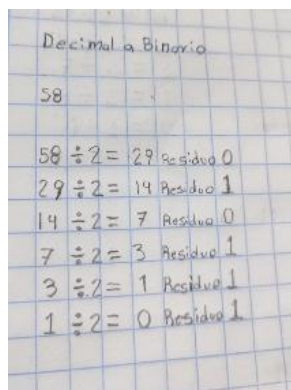 Decimal a Binario
58
58 ÷ 2 = 29 Residuo 0
29 ÷ 2 = 14 Residuo 1
14 ÷ 2 = 7 Residuo 0
7 ÷ 2 = 3 Residuo 1
3 ÷ 2 = 1 Residuo 1
1 ÷ 2 = 0 Residuo 1